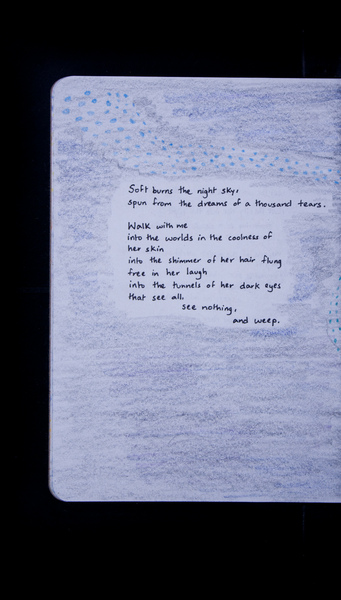 Soft burns the night sky,
spun from the dreams of a thousand tears.
Walk with me
into the worlds in the coolness of
her skin
into the shimmer of her hair flung
free in her laugh
into the tunnels of her dark eyes
that see all,
see nothing,
and weep.